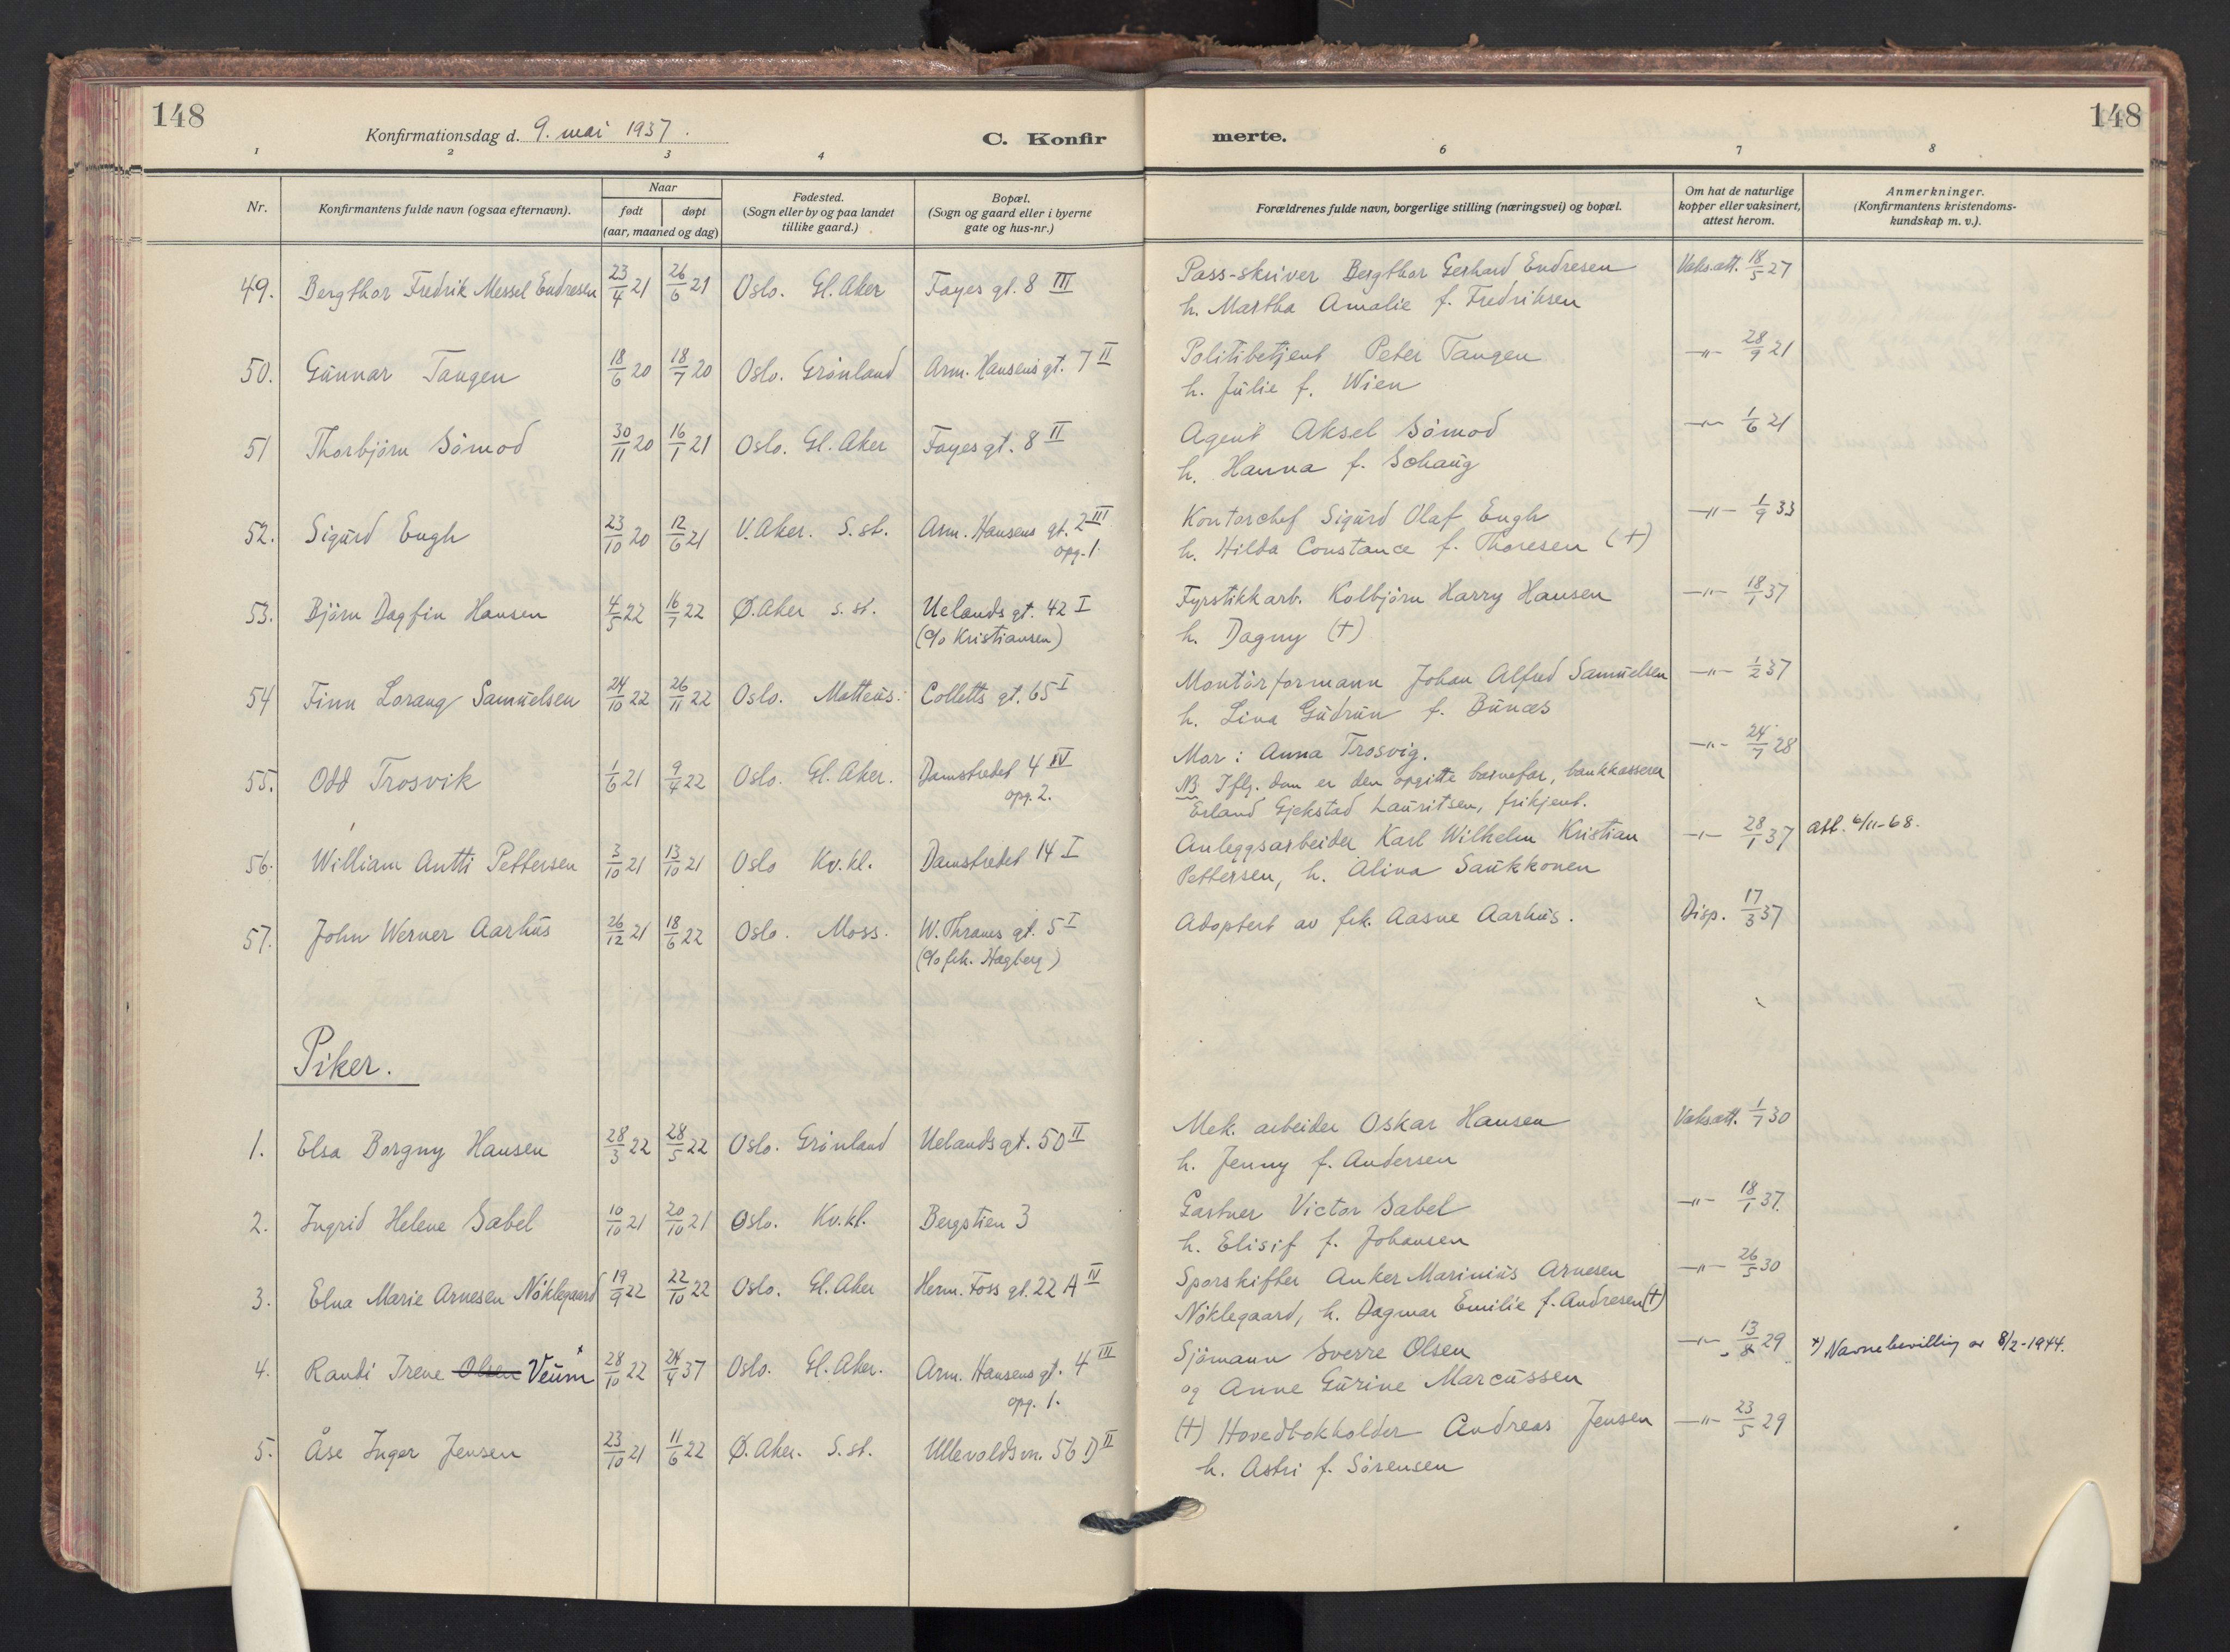 148
Konfirmationsdag d. 9. mai 1937.
C. Konfir
merte.
148
1 2 3 4 6 7 8
Nr.
Konfirmantens fulde navn (ogsaa efternavn).
Naar
født døpt
(aar, maaned og dag)
Fødested.
(Sogn eller by og paa landet
tillike gaard.)
Bopæl.
(Sogn og gaard eller i byerne
gate og hus-nr.)
Forældrenes fulde navn, borgerlige stilling (næringsvei) og bopæl.
Om hat de naturlige
kopper eller vaksinert,
attest herom.
Anmerkninger.
(Konfirmantens kristendoms-
kundskap m. v.).
49. Bergthor Fredrik Messel Endresen 23/4 21 26/6 21 Oslo. Gl. Aker Fayes gt. 8 III Pass-skriver Bergthor Gerhard Endresen Vaks.att. 18/5 27
h. Martha Amalie f. Fredriksen
50. Gunnar Tangen 18/6 20 18/7 20 Oslo. Grønland Arm. Hansens gt. 7 II Politibetjent Peter Tangen -"- 28/9 21
h. Julie f. Wien
51 Thorbjørn Sömod 30/11 20 16/1 21 Oslo. Gl. Aker Fayes gt. 8 II Agent Aksel Sömod -"- 1/6 21
h. Hanna f. Schaug
52. Sigurd Engh 23/10 20 12/6 21 V. Aker. S. st. Arm. Hansens gt. 2 III Kontorchef Sigurd Olaf Engh -"- 1/9 33
opg. 1. h. Hilda Constance f. Thoresen (+)
53. Björn Dagfin Hansen 4/5 22 16/7 22 Ø. Aker S. st. Uelands gt. 42 I Fyrstikkarb. Kolbjørn Harry Hansen -"- 18/1 37
(c/o Kristiansen) h. Dagny (+)
54 Finn Lorang Samuelsen 24/10 22 26/11 22 Oslo. Matteus: Colletts gt. 65 I Montörformann Johan Alfred Samuelsen -"- 1/2 37
h. Lina Gudrun f. Bunæs
55. Odd Trosvik 1/6 21 9/4 22 Oslo. Gl. Aker. Damstredet 4 IV Mor: Anna Trosvig. -"- 24/7 28
opg. 2. NB Iflg. dom er den opgitte barnefar, bankkasserer
Erland Gjekstad Lauritsen, frikjent.
56. William Antti Pettersen 3/10 21 13/10 21 Oslo Kv. kl. Damstredet 14 I Anleggsarbeider Karl Wilhelm Kristian -"- 28/1 37 att. 6/11-68.
Pettersen, h. Alina Saukkonen
57. John Werner Aarhus 26/12 21 18/6 22 Oslo. Moss. W. Thranes gt. 5 I Adoptert av frk. Aasne Aarhus. Disp. 17/3 37
(c/o frk. Hagberg)
Piker.
1. Elsa Borgny Hansen 28/3 22 28/5 22 Oslo. Grønland Uelands gt. 50 II Mek. arbeider Oskar Hansen Vaks.att. 1/7 30
h. Jenny f. Andersen
2. Ingrid Helene Sabel 10/10 21 20/10 21 Oslo. Kv. kl. Bergstien 3 Gartner Victor Sabel -"- 18/1 37.
h. Elisif f. Johansen
3. Elna Marie Arnesen Nöklegaard 19/9 22 22/10 22 Oslo. Gl. Aker Herm. Foss gt. 22 A IV Sporskifter Anker Marinius Arnesen -"- 26/5 30
Nöklegaard, h. Dagmar Emilie f. Andresen (+)
4. Randi Irene Olsen Veum x 28/10 22 24/4 37 Oslo. Gl. Aker. Arm. Hansens gt. 4 III Sjömann Sverre Olsen -"- 13/8 29 x) Navnebevilling av 8/2-1944.
opg. 1. og Anne Gurine Marcussen
5. Åse Inger Jensen 23/10 21 11/6 22 Ø. Aker. S. st. Ullevoldsvn. 56 D II (+) Hovedbokholder Andreas Jensen -"- 23/5 29
h. Astri f. Sörensen